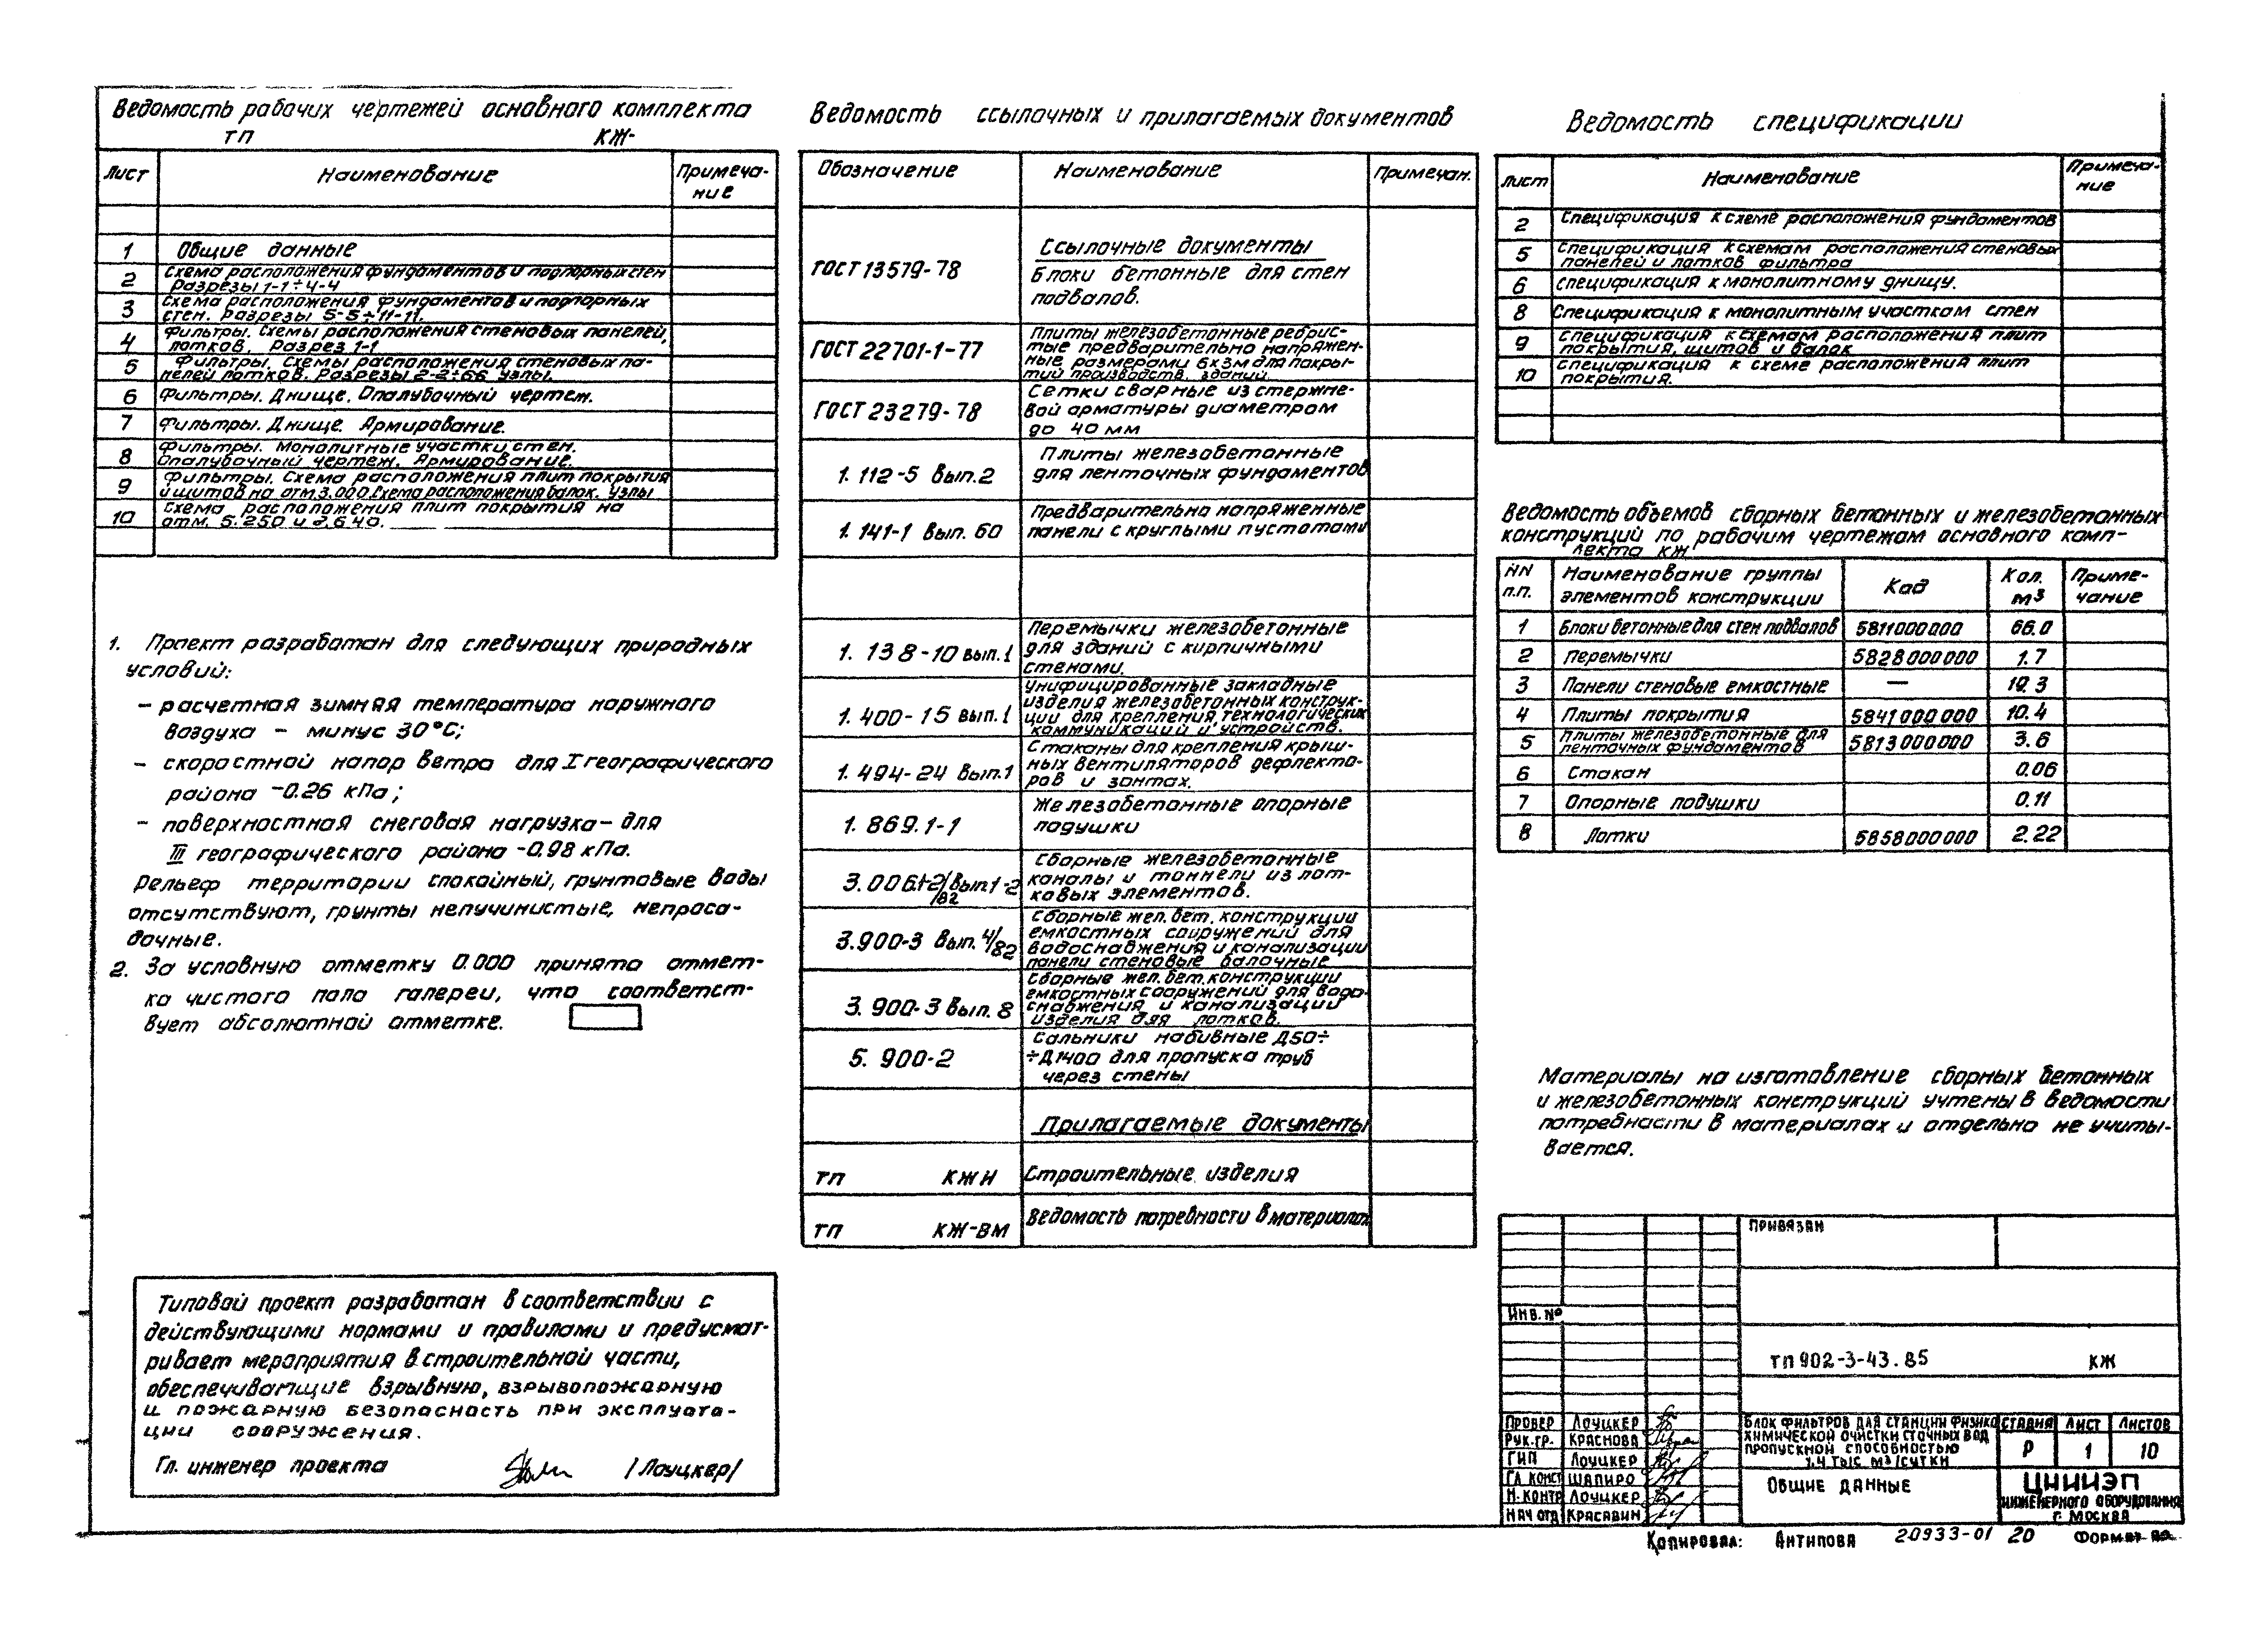 Ведомость рабочих чертежей основного комплекта
ТП КЖ-
Лист Наименование Примеча-
ние
1 Общие данные
2 Схема расположения фундаментов и подпорных стен
Разрезы 1-1÷4-4
3 Схема расположения фундаментов и подпорных
стен. Разрезы 5-5÷11-11.
4 Фильтры. Схемы расположения стеновых панелей,
лотков. Разрез 1-1
5 Фильтры. Схемы расположения стеновых па-
нелей лотков. Разрезы 2-2÷6-6. Узлы.
6 Фильтры. Днище. Опалубочный чертеж.
7 Фильтры. Днище. Армирование.
8 Фильтры. Монолитные участки стен.
Опалубочный чертеж. Армирование.
9 Фильтры. Схема расположения плит покрытия
и щитов на отм. 3.000. Схема расположения балок. Узлы
10 Схема расположения плит покрытия на
отм. 5.250 и
1. Проект разработан для следующих природных
условий:
- расчетная зимняя температура наружного
воздуха - минус 30°С;
- скоростной напор ветра для I географического
района -0.26 кПа;
- поверхностная снеговая нагрузка - для
III географического района -0.98 кПа.
Рельеф территории спокойный, грунтовые воды
отсутствуют, грунты непучинистые, непроса-
дочные.
2. За условную отметку 0.000 принята отмет-
ка чистого пола галереи, что соответст-
вует абсолютной отметке.
Типовой проект разработан в соответствии с
действующими нормами и правилами и предусмат-
ривает мероприятия в строительной части,
обеспечивающие взрывную, взрывопожарную
и пожарную безопасность при эксплуата-
ции сооружения.
Гл. инженер проекта /Лоуцкер/
Ведомость ссылочных и прилагаемых документов
Обозначение Наименование Примечан.
Ссылочные документы
ГОСТ 13579-78 Блоки бетонные для стен
подвалов.
ГОСТ 22701-1-77 Плиты железобетонные ребрис-
тые предварительно напряжен-
ные размерами 6х3м для покры-
тий производств. зданий.
ГОСТ 23279-78 Сетки сварные из стержне-
вой арматуры диаметром
до 40 мм
1. 112-5 вып. 2 Плиты железобетонные
для ленточных фундаментов
1. 141-1 вып. 60 Предварительно напряженные
панели с круглыми пустотами
1. 138-10 вып. 1 Перемычки железобетонные
для зданий с кирпичными
стенами.
1. 400-15 вып. 1 Унифицированные закладные
изделия железобетонных конструк-
ции для крепления технологических
коммуникаций и устройств.
1. 494-24 вып. 1 Стаканы для крепления крыш-
ных вентиляторов дефлекто-
ров и зонтах.
1. 869.1-1 Железобетонные опорные
подушки
3.006.1-2/82 вып. 1-2 Сборные железобетонные
каналы и тоннели из лот-
ковых элементов.
3.900-3 вып. 4/82 Сборные жел. бет. конструкции
емкостных сооружений для
водоснабжения и канализации
панели стеновые балочные
3. 900-3 вып. 8 Сборные жел. бет. конструкции
емкостных сооружений для водо-
снабжения и канализации
изделия для лотков.
5. 900-2 Сальники набивные Д50÷
÷Д1400 для пропуска труб
через стены
Прилагаемые документы
ТП КЖИ Строительные изделия
ТП КЖ-ВМ Ведомость потребности в материалах
Ведомость спецификации
Лист Наименование Примеча-
ние
2 Спецификация к схеме расположения фундаментов
5 Спецификация к схемам расположения стеновых
панелей и лотков фильтра
6 Спецификация к монолитному днищу.
8 Спецификация к монолитным участком стен
9 Спецификация к схемам расположения плит
покрытия, щитов и балок
10 Спецификация к схеме расположения плит
покрытия.
Ведомость объемов сборных бетонных и железобетонных
конструкций по рабочим чертежам основного комп-
лекта КЖ
NN
п.п. Наименование группы
элементов конструкции Код Кол.
м³ Приме-
чание
1 Блоки бетонные для стен подвалов 5811000000 66.0
2 Перемычки 5828000000 1.7
3 Панели стеновые емкостные — 19.3
4 Плиты покрытия 5841000000 10.4
5 Плиты железобетонные для
ленточных фундаментов 5813000000 3.6
6 Стакан 0.06
7 Опорные подушки 0.11
8 Лотки 5858000000 2.22
Материалы на изготовление сборных бетонных
и железобетонных конструкций учтены в ведомости
потребности в материалах и отдельно не учиты-
вается.
Привязан
Инв. №
ТП 902-3-43.85 КЖ
Провер Лоуцкер
Рук. гр. Краснова
ГИП Лоуцкер
Гл. конст Шапиро
Н. контр Лоуцкер
Нач отд Красавин
Блок фильтров для станции физико
химической очистки сточных вод
пропускной способностью
1.4 тыс м³/сутки
Стадия Лист Листов
Р 1 10
Общие данные
ЦНИИЭП
инженерного оборудования
г. Москва
Копировал: Антипова 20933-01 20 Формат